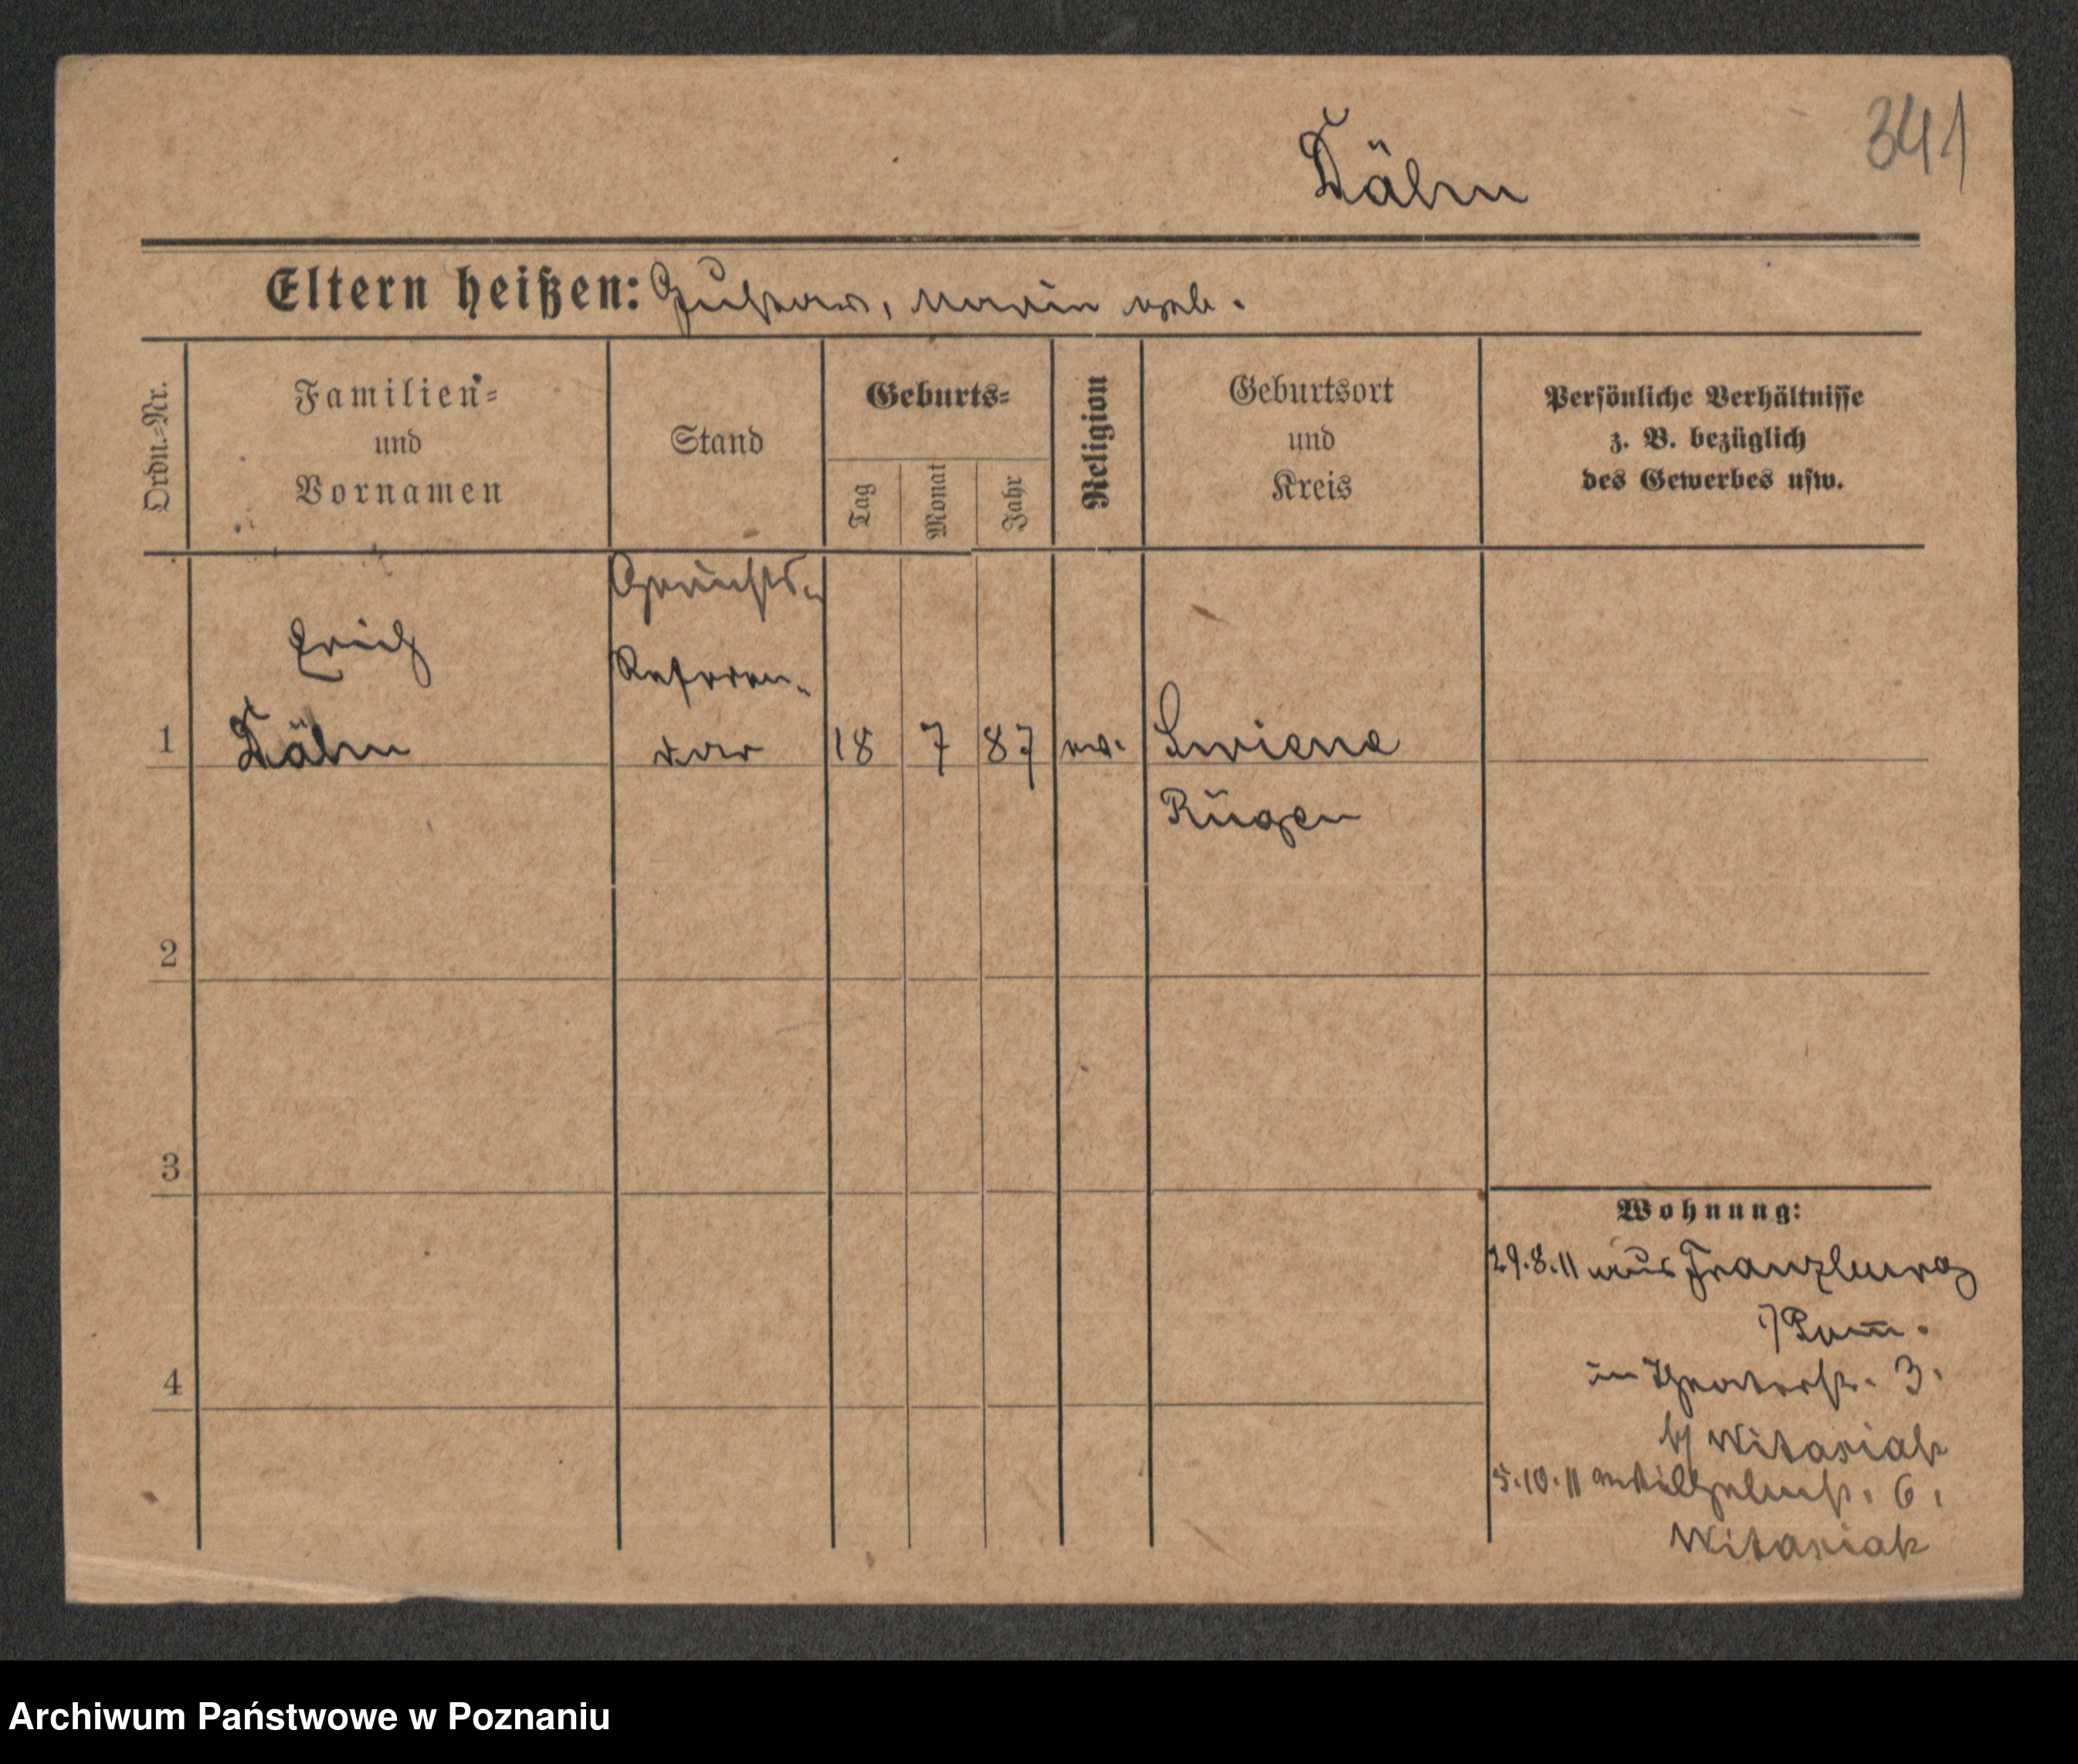 341
Dälm
Eltern heißen: Gustav, Marie geb.
Ordn.-Nr.
Familien-
und
Vornamen
Stand
Geburts-
Tag
Monat
Jahr
Religion
Geburtsort
und
Kreis
Persönliche Verhältnisse
z. B. bezüglich
des Gewerbes usw.
Gerichts-
Erich
Referen-
1 Dälm dar 18 7 87 ev.
Rügen
2
3
Wohnung:
29.8.11 aus Franzburg
i/Pom.
in Theaterstr. 3.
b/ Witasiak
4
5.10.11 Wilhelmstr. 6.
Witasiak
Archiwum Państwowe w Poznaniu